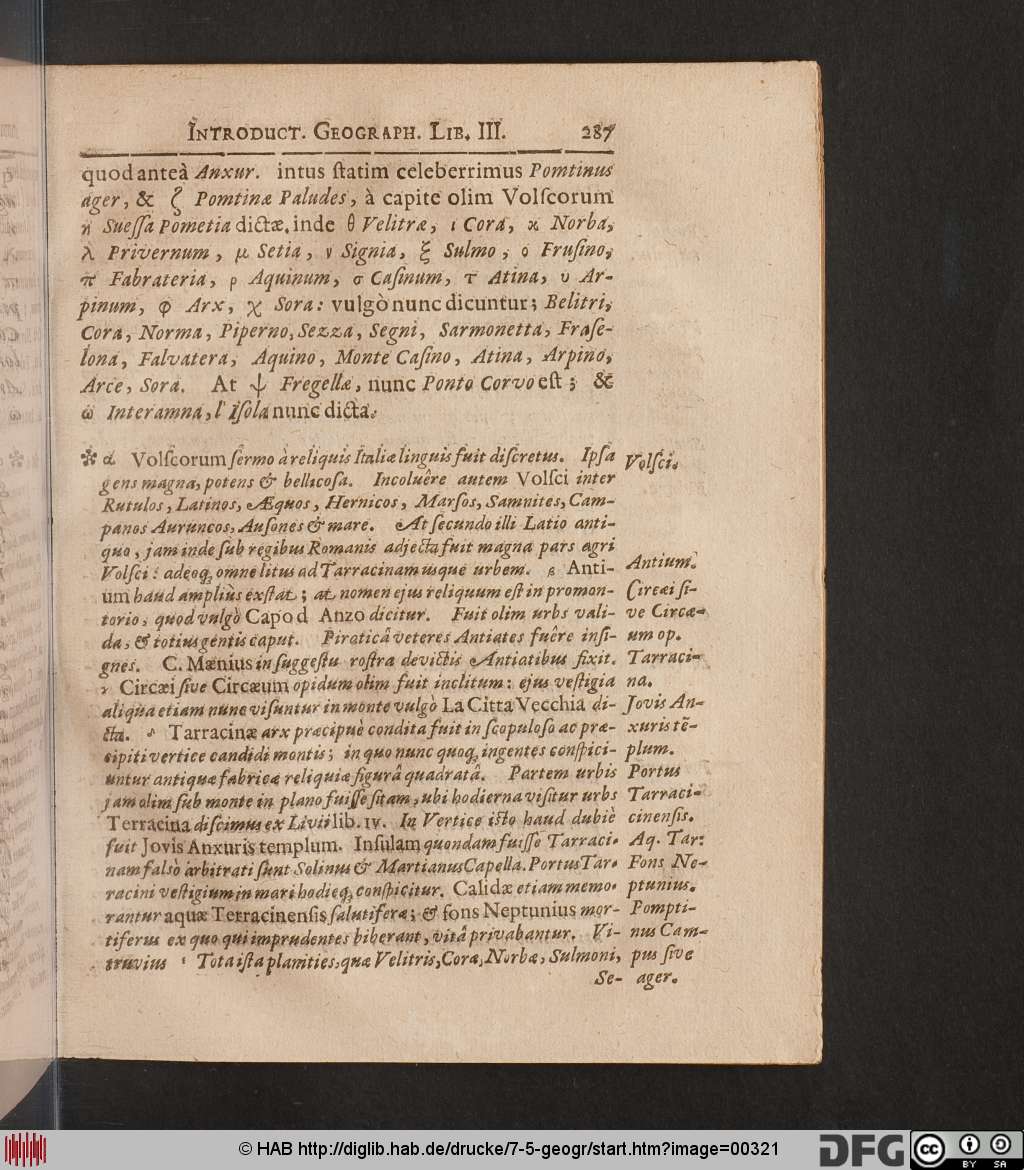 INTRODUCT. GEOGRAPH. LIB. III. 287
quod anteà Anxur. intus ſtatim celeberrimus Pomtinus
ager, & ζ Pomtinæ Paludes, à capite olim Volſcorum
η Sueſſa Pometia dictæ. inde θ Velitræ, ι Cora, ϰ Norba,
λ Privernum, μ Setia, ν Signia, ξ Sulmo, ο Fruſino,
π Fabrateria, ρ Aquinum, σ Caſinum, τ Atina, υ Ar-
pinum, φ Arx, χ Sora: vulgò nunc dicuntur; Belitri,
Cora, Norma, Piperno, Sezza, Segni, Sarmonetta, Fraſe-
lona, Falvatera, Aquino, Monte Caſino, Atina, Arpino,
Arce, Sora. At ψ Fregellæ, nunc Ponto Corvo eſt; &
ω Interamna, l' Iſola nunc dicta.
* α Volſcorum ſermo à reliquis Italiæ linguis fuit diſcretus. Ipſa
gens magna, potens & bellicoſa. Incoluêre autem Volſci inter
Rutulos, Latinos, Æquos, Hernicos, Marſos, Samnites, Cam-
panos Auruncos, Auſones & mare. At ſecundo illi Latio anti-
quo, jam inde ſub regibus Romanis adjecta fuit magna pars agri
Volſci: adeoq; omne litus ad Tarracinam usque urbem. β Anti-
um haud ampliùs exſtat; at nomen ejus reliquum eſt in promon-
torio, quod vulgò Capo d Anzo dicitur. Fuit olim urbs vali-
da, & totius gentis caput. Piraticâ veteres Antiates fuêre inſi-
gnes. C. Mænius in ſuggeſtu roſtra devictis Antiatibus fixit.
γ Circæi ſive Circæum opidum olim fuit inclitum: ejus veſtigia
aliqua etiam nunc viſuntur in monte vulgò La Citta Vecchia di-
cta. δ Tarracinæ arx præcipuè condita fuit in ſcopuloſo ac præ-
cipiti vertice candidi montis; in quo nunc quoq; ingentes conſpici-
untur antiquæ fabricæ reliquiæ figurâ quadratâ. Partem urbis
jam olim ſub monte in plano fuiſſe ſitam, ubi hodierna viſitur urbs
Terracina diſcimus ex Livii lib. IV. In Vertice iſto haud dubiè
fuit Jovis Anxuris templum. Inſulam quondam fuiſſe Tarraci-
nam falsò arbitrati ſunt Solinus & Martianus Capella. Portus Tar-
racini veſtigium in mari hodieq; conſpicitur. Calidæ etiam memo-
rantur aquæ Terracinenſis ſalutiferæ; & fons Neptunius mor-
tiferus ex quo qui imprudentes biberant, vitâ privabantur. Vi-
truvius ε Tota iſta planities, quæ Velitris, Coræ, Norbæ, Sulmoni,
Se-
Volſci.
Antium.
Circæi ſi-
ve Circæ-
um op.
Tarraci-
na.
Jovis An-
xuris tẽ-
plum.
Portus
Tarraci-
cinenſis.
Aq. Tar:
Fons Ne-
ptunius.
Pompti-
nus Cam-
pus ſive
ager.
© HAB http://diglib.hab.de/drucke/7-5-geogr/start.htm?image=00321
DFG
cc
BY SA